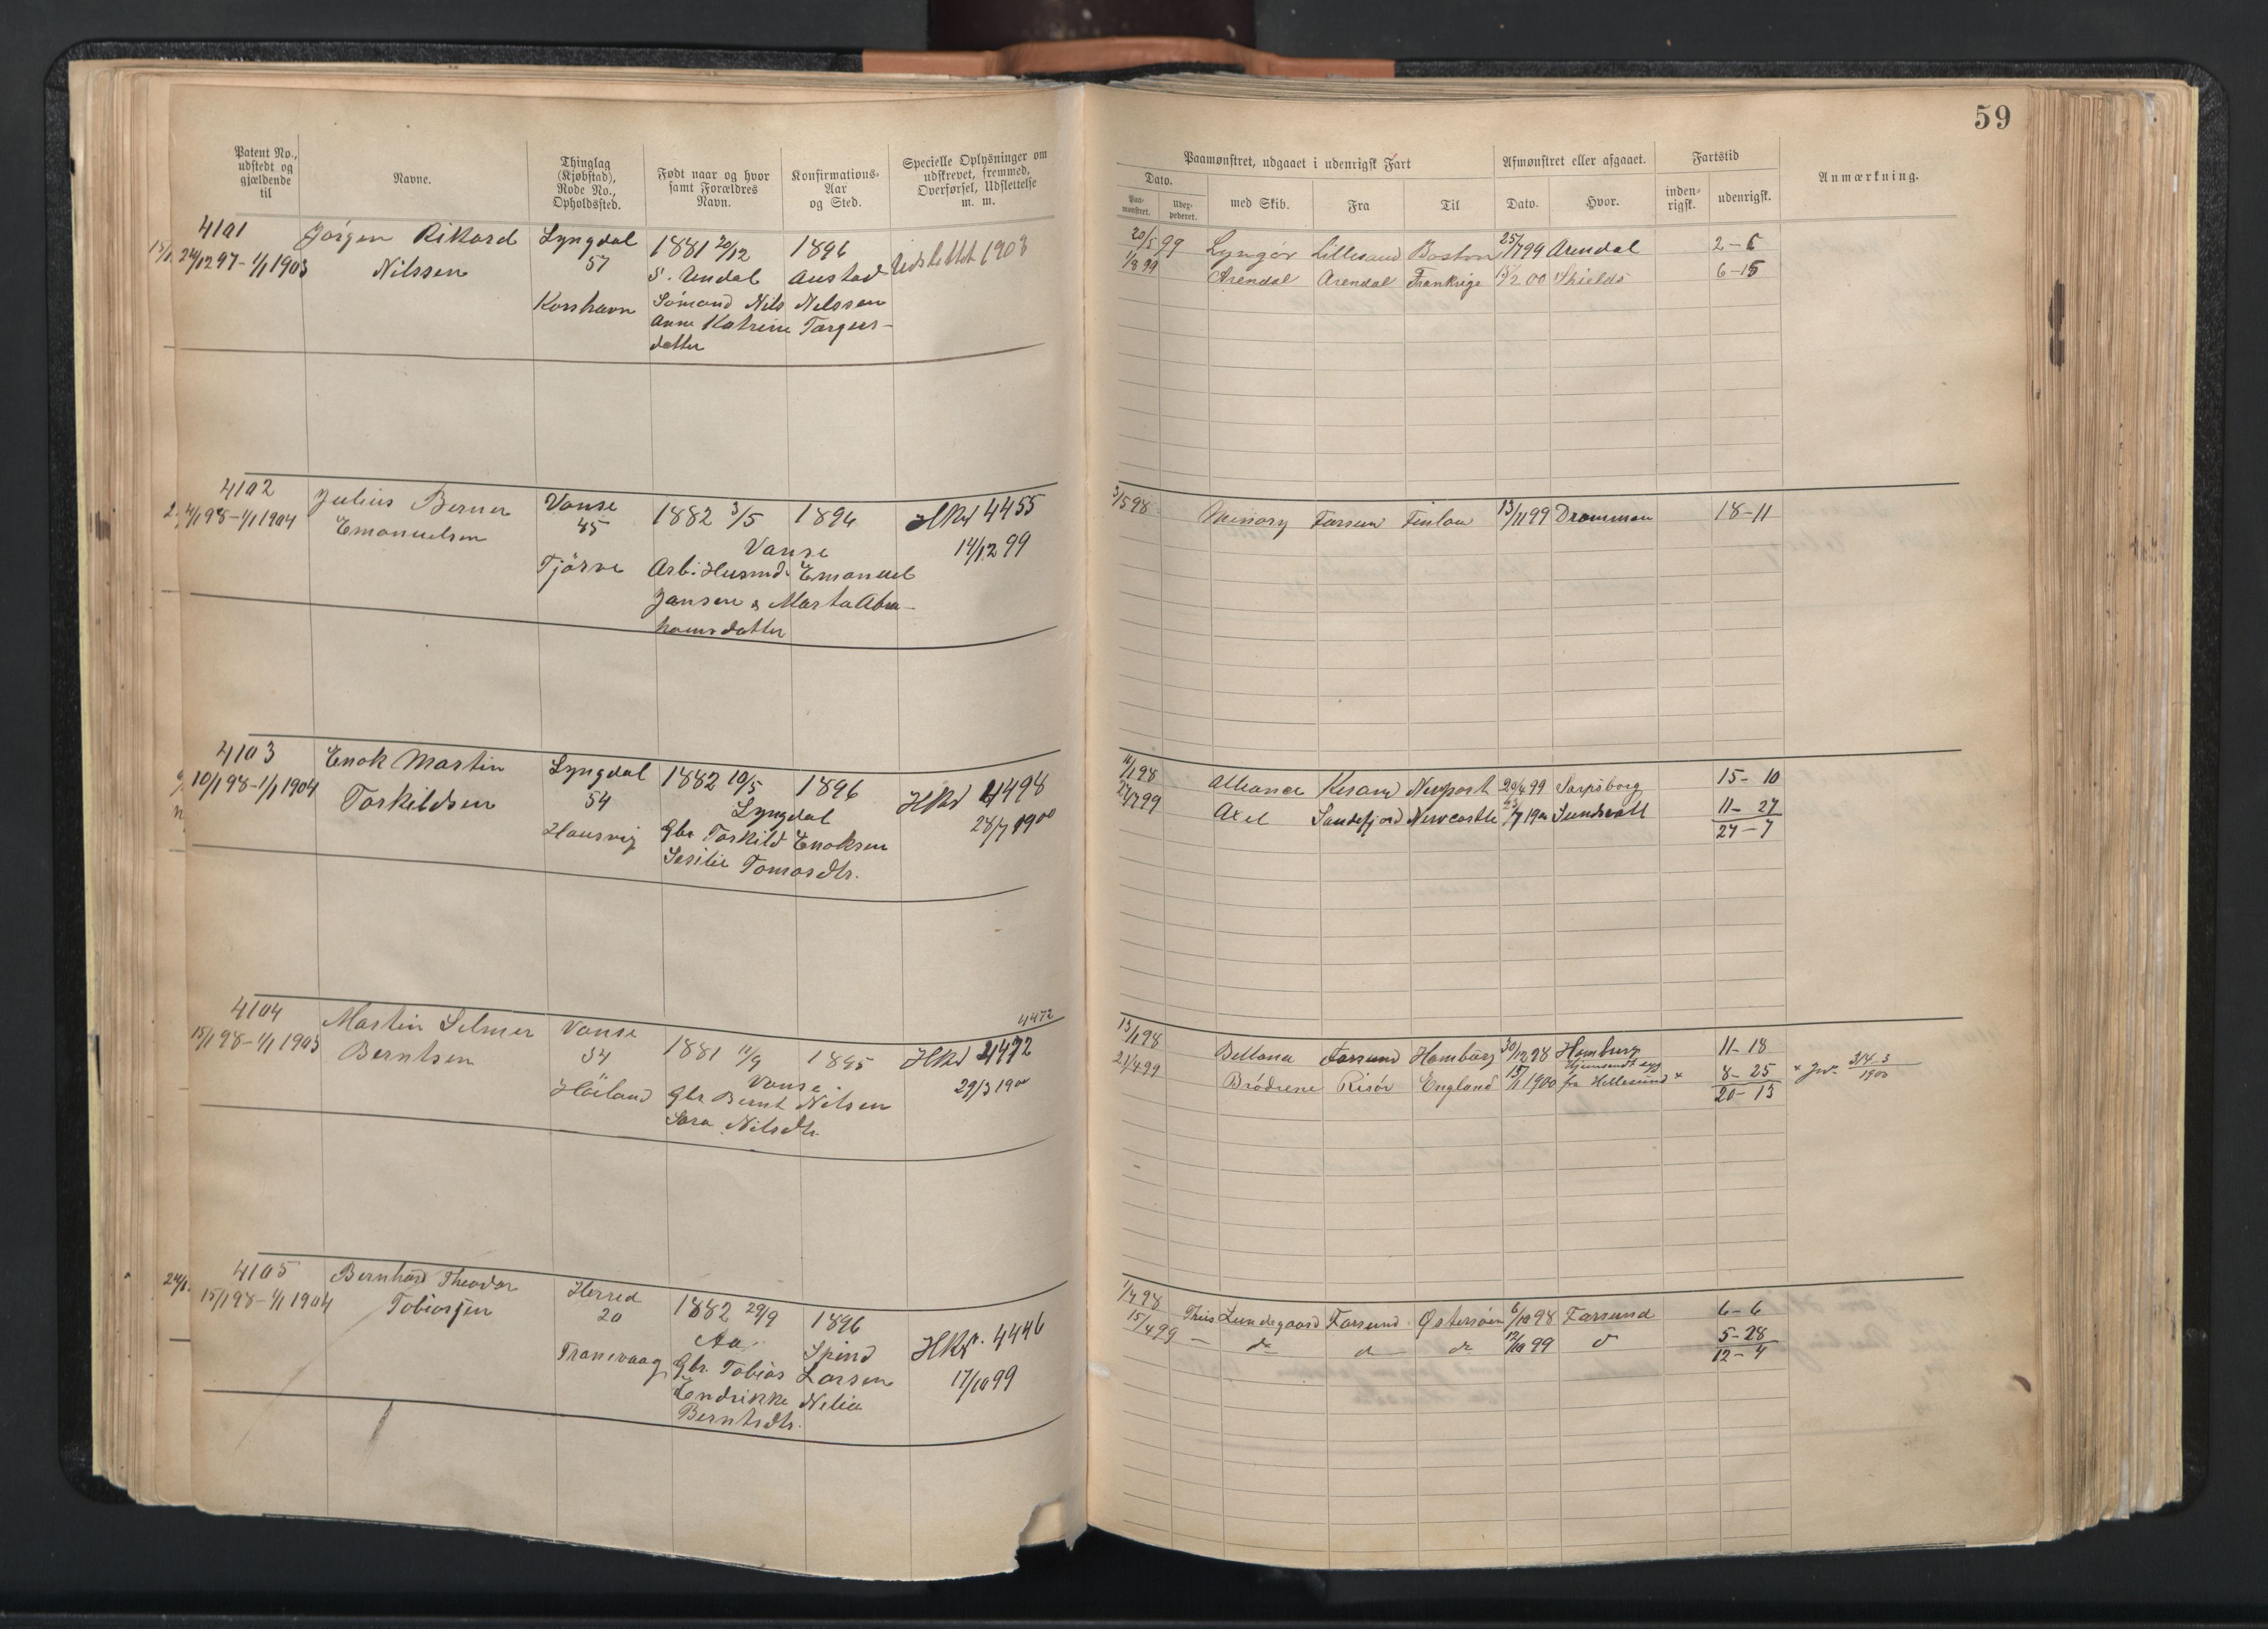 59
Patent No., udstedt og gjældende til
Navne.
Thinglag (Kjøbstad), Rode No., Opholdssted.
Født naar og hvor samt Forældres Navn.
Konfirmations-Aar og Sted.
Specielle Oplysninger om udskrevet, fremmed, Overførsel, Udslettelse m. m.
Paamønstret, udgaaet i udenrigsk Fart
Afmønstret eller afgaaet.
Fartstid
Anmærkning.
Dato.
Paa-mønstret.
Udex-pederet.
med Skib.
Fra
Til
Dato.
Hvor.
inden-rigsk.
udenrigsk.
4101
24/12 97 - 1/1 1903
Jørgen Rikard
Nilssen
Lyngdal
57
Korshavn
1881 20/12
S. Undal
Sömand Nils Nilssen
Anne Katrine Targes-
datter
1896
Austad
Udslettet 1903
20/5 99 Lyngör Lillesand Boston 25/7 99 Arendal 2-6
1/8 99 Arendal Arendal Frankrige 15/2 00 Shields 6-15
4102
4/1 98 - 1/1 1904
Julius Berner
Emanuelsen
Vanse
45
Tjörve
1882 3/5 1896
Vanse
Arb. Husmd. Emanuel
Jansen & Marta Abra-
hamsdatter
HKd 4455
14/12 99
3/5 98 Farsun Finlan 13/11 99 Drammen 18-11
4103
10/1 98 - 1/1 1904
Enok Martin
Torkildsen
Lyngdal
54
Hausvig
1882 10/5 1896
Lyngdal
Gbr. Torkild Enoksen
Sesilie Tomasdtr.
HKd 4498
28/7 1900
11/1 98 Alliance Krsand Newport 20/4 99 Sarpsborg 15-10
Axel Sandefjord Newcastle Sundsvall 11-27
27-7
4104
15/1 98 - 1/1 1903
Martin Selmer
Berntsen
Vanse
34
Höiland
1881 11/9 1895
Vanse
Gbr Bernt Nilsen
Sara Nilsdtr.
4472
HKd 4472
29/3 1900
13/1 98 Bellona Farsund Hamburg 30/12 98 Hamburg 11-18
21/4 99 Brødrene Risör England 15/1 1900 fra Hillesund × 8-25
20-13
4105
15/1 98 - 1/1 1904
Bernhard Theodor
Tobiassen
Herred
20
Tranevaag
1882 29/9 1896
Aa Spind
Gbr. Tobias Larsen
Endrikke Nilia
Berntsdtr.
HKd. 4446
17/10 99
1/4 98 Lundegaard Farsund Østersøen 6/10 98 Farsund 6-6
15/4 99 — do do do 12/10 99 do 5-28
12-4